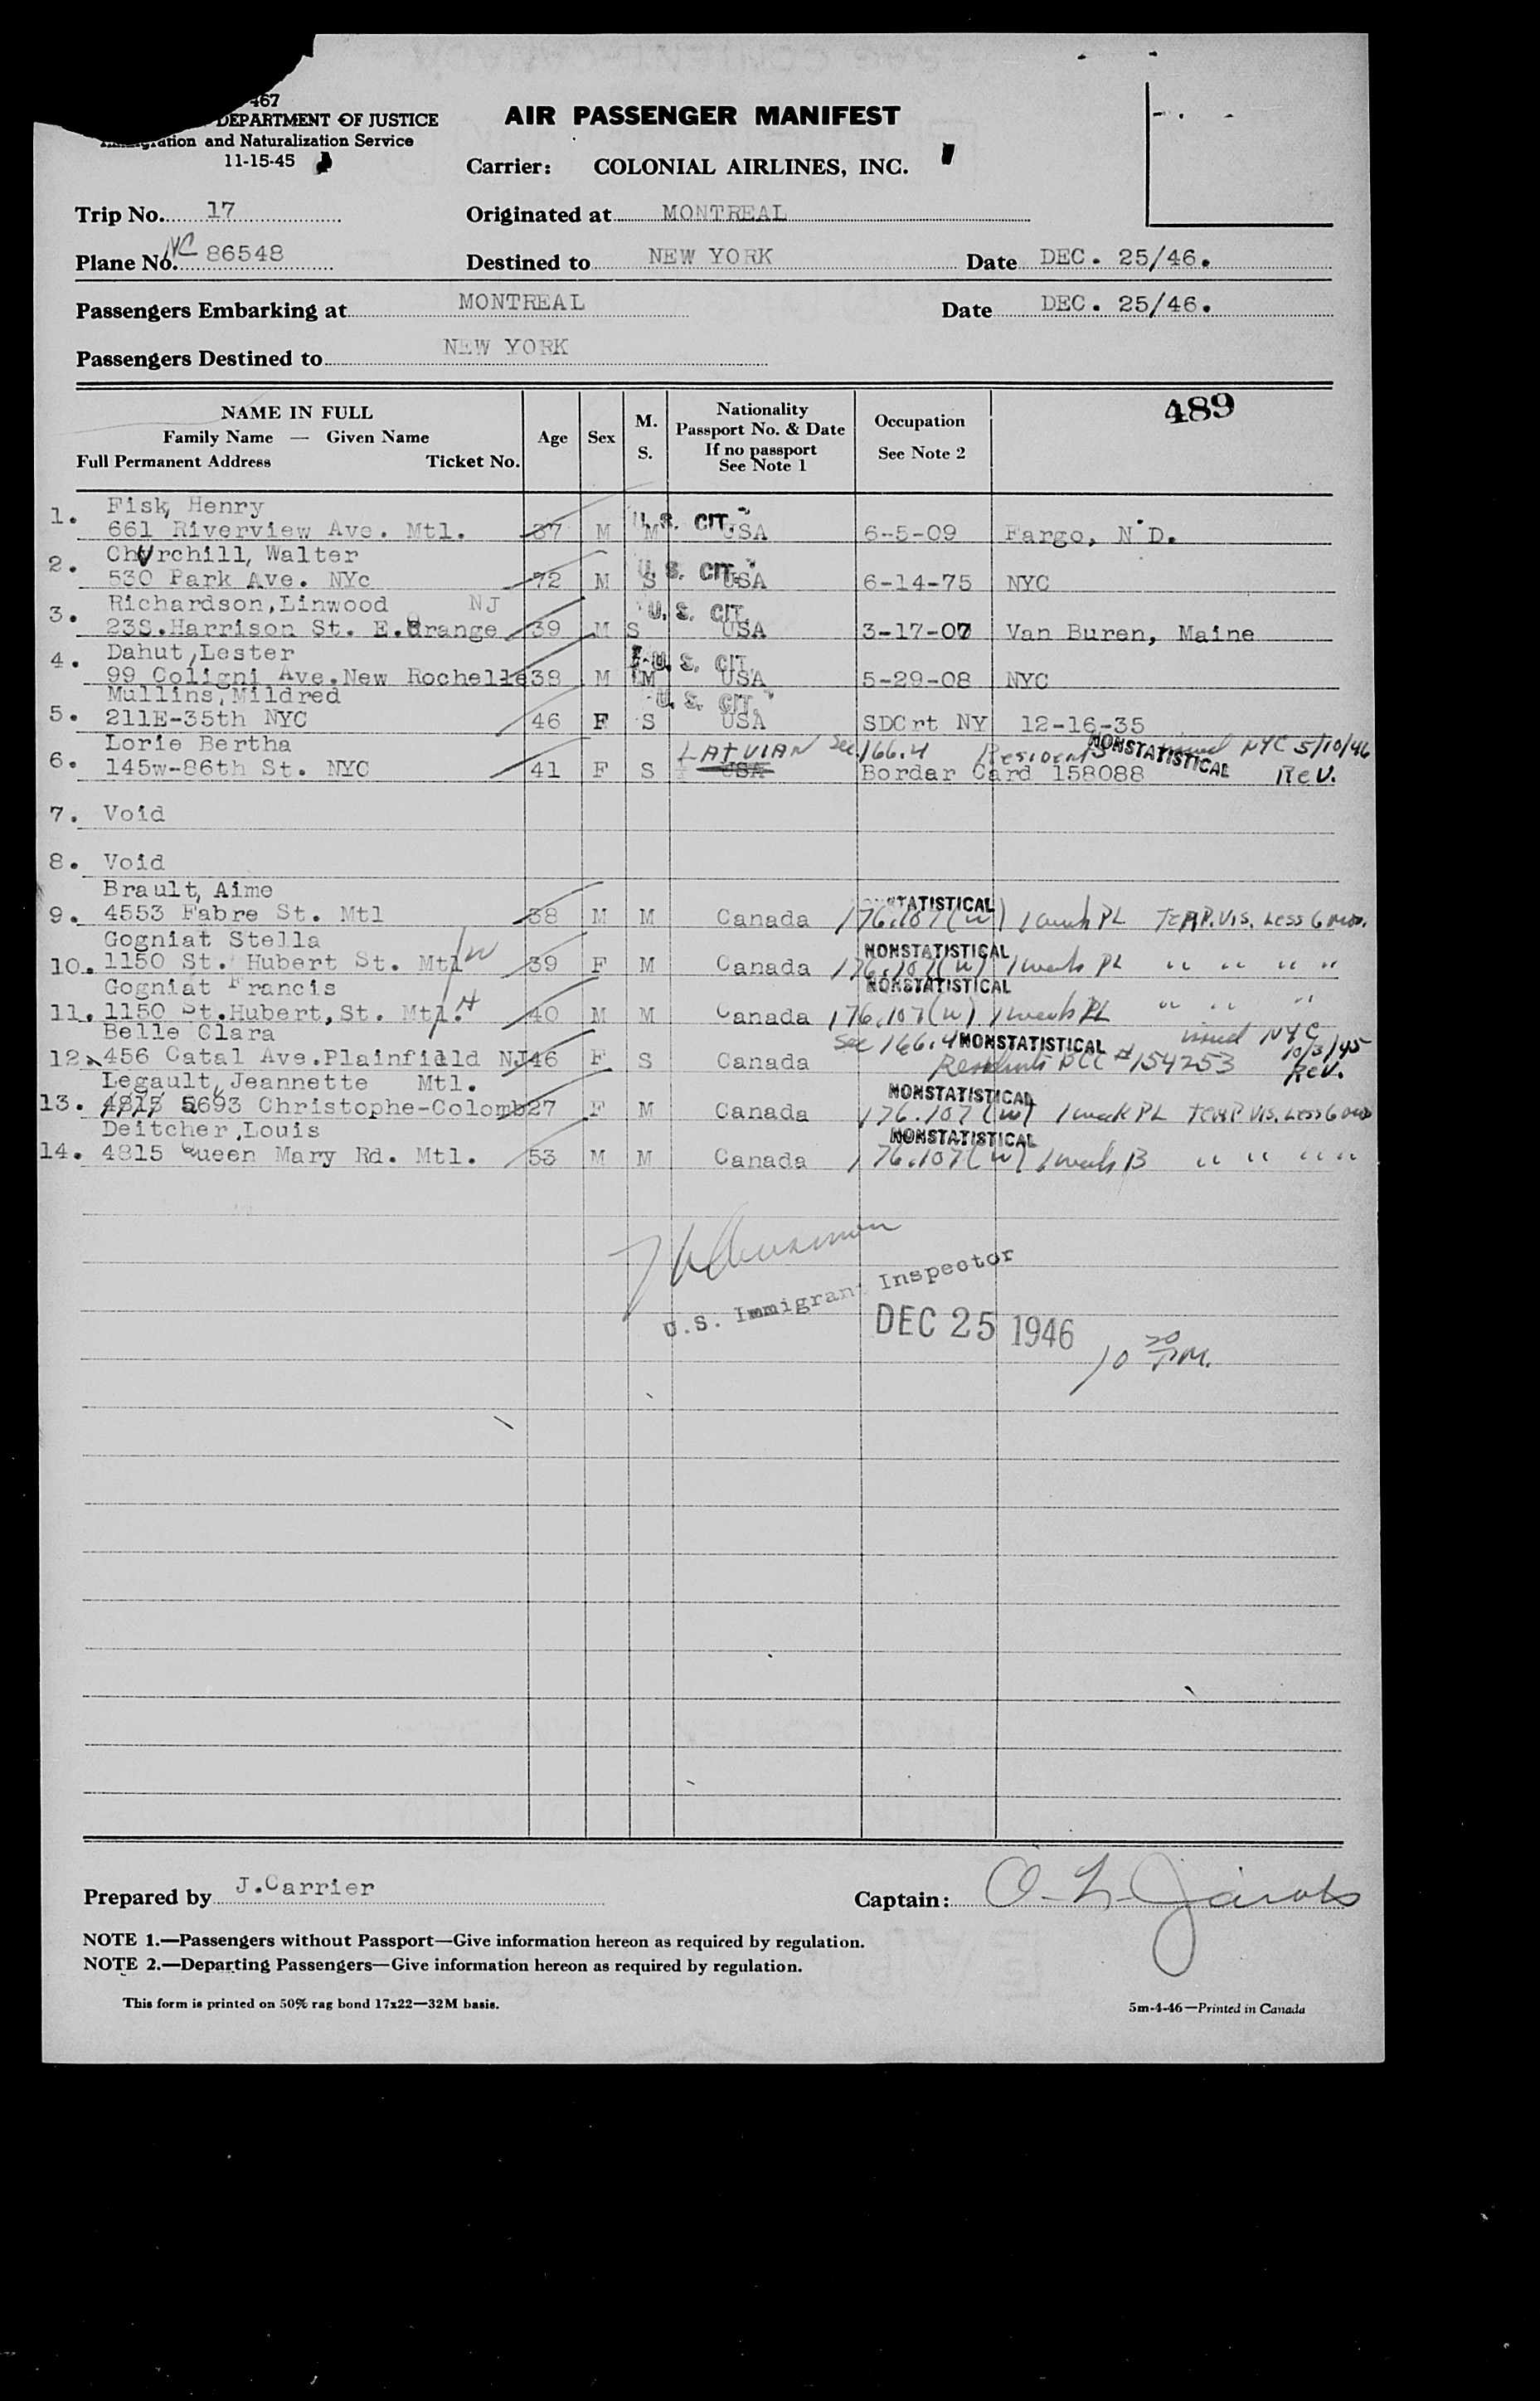 467
DEPARTMENT OF JUSTICE
Immigration and Naturalization Service
11-15-45
AIR PASSENGER MANIFEST
Carrier: COLONIAL AIRLINES, INC.
Trip No. 17
Originated at MONTREAL
Plane No. NC 86548
Destined to NEW YORK Date DEC. 25/46.
Passengers Embarking at MONTREAL Date DEC. 25/46.
Passengers Destined to NEW YORK
489
NAME IN FULL
Family Name — Given Name
Full Permanent Address Ticket No.
Age
Sex
M.
S.
Nationality
Passport No. & Date
If no passport
See Note 1
Occupation
See Note 2
Fisk, Henry
1. 661 Riverview Ave. Mtl. 37 M M U.S. CIT. USA 6-5-09 Fargo, N.D.
Churchill, Walter
2. 530 Park Ave. NYc 72 M S U.S. CIT. USA 6-14-75 NYC
Richardson,Linwood NJ
3. 23S.Harrison St. E.Orange 39 M S U.S. CIT. USA 3-17-07 Van Buren, Maine
Dahut,Lester
4. 99 Coligni Ave.New Rochelle 38 M M U.S. CIT. USA 5-29-08 NYC
Mullins,Mildred
5. 211E-35th NYC 46 F S U.S. CIT. USA SDCrt NY 12-16-35
Lorie Bertha LATVIAN Sec 166.4 Residents NONSTATISTICAL issued NYC 5/10/46
6. 145w-86th St. NYC 41 F S USA Bordar Card 158088 Rev.
7. Void
8. Void
Brault, Aime
9. 4553 Fabre St. Mtl 38 M M Canada NONSTATISTICAL 176.107(w) 1 week PL TEMP. VIS. Less 6 mos.
Gogniat Stella
10. 1150 St. Hubert St. Mtl W 39 F M Canada NONSTATISTICAL 176.107(w) 1 week PL " " " "
Gogniat Francis
11. 1150 St.Hubert,St. Mtl. H 40 M M Canada NONSTATISTICAL 176.107(w) 1 week PL " " "
Belle Clara Sec 166.4 NONSTATISTICAL issued NYC
12. 456 Catal Ave.Plainfield NJ 46 F S Canada Residents BCC #154253 10/3/45 Rev.
Legault,Jeannette Mtl.
13. 4815 5693 Christophe-Colomb 27 F M Canada NONSTATISTICAL 176.107(w) 1 week PL TEMP. VIS. Less 6 mos
Deitcher,Louis
14. 4815 Queen Mary Rd. Mtl. 53 M M Canada NONSTATISTICAL 176.107(w) 1 week B " " " "
U.S. Immigrant Inspector
DEC 25 1946
10 20 P.M.
Prepared by J.Carrier
Captain: O. L. Jacobs
NOTE 1.—Passengers without Passport—Give information hereon as required by regulation.
NOTE 2.—Departing Passengers—Give information hereon as required by regulation.
This form is printed on 50% rag bond 17x22—32M basis.
5m-4-46—Printed in Canada